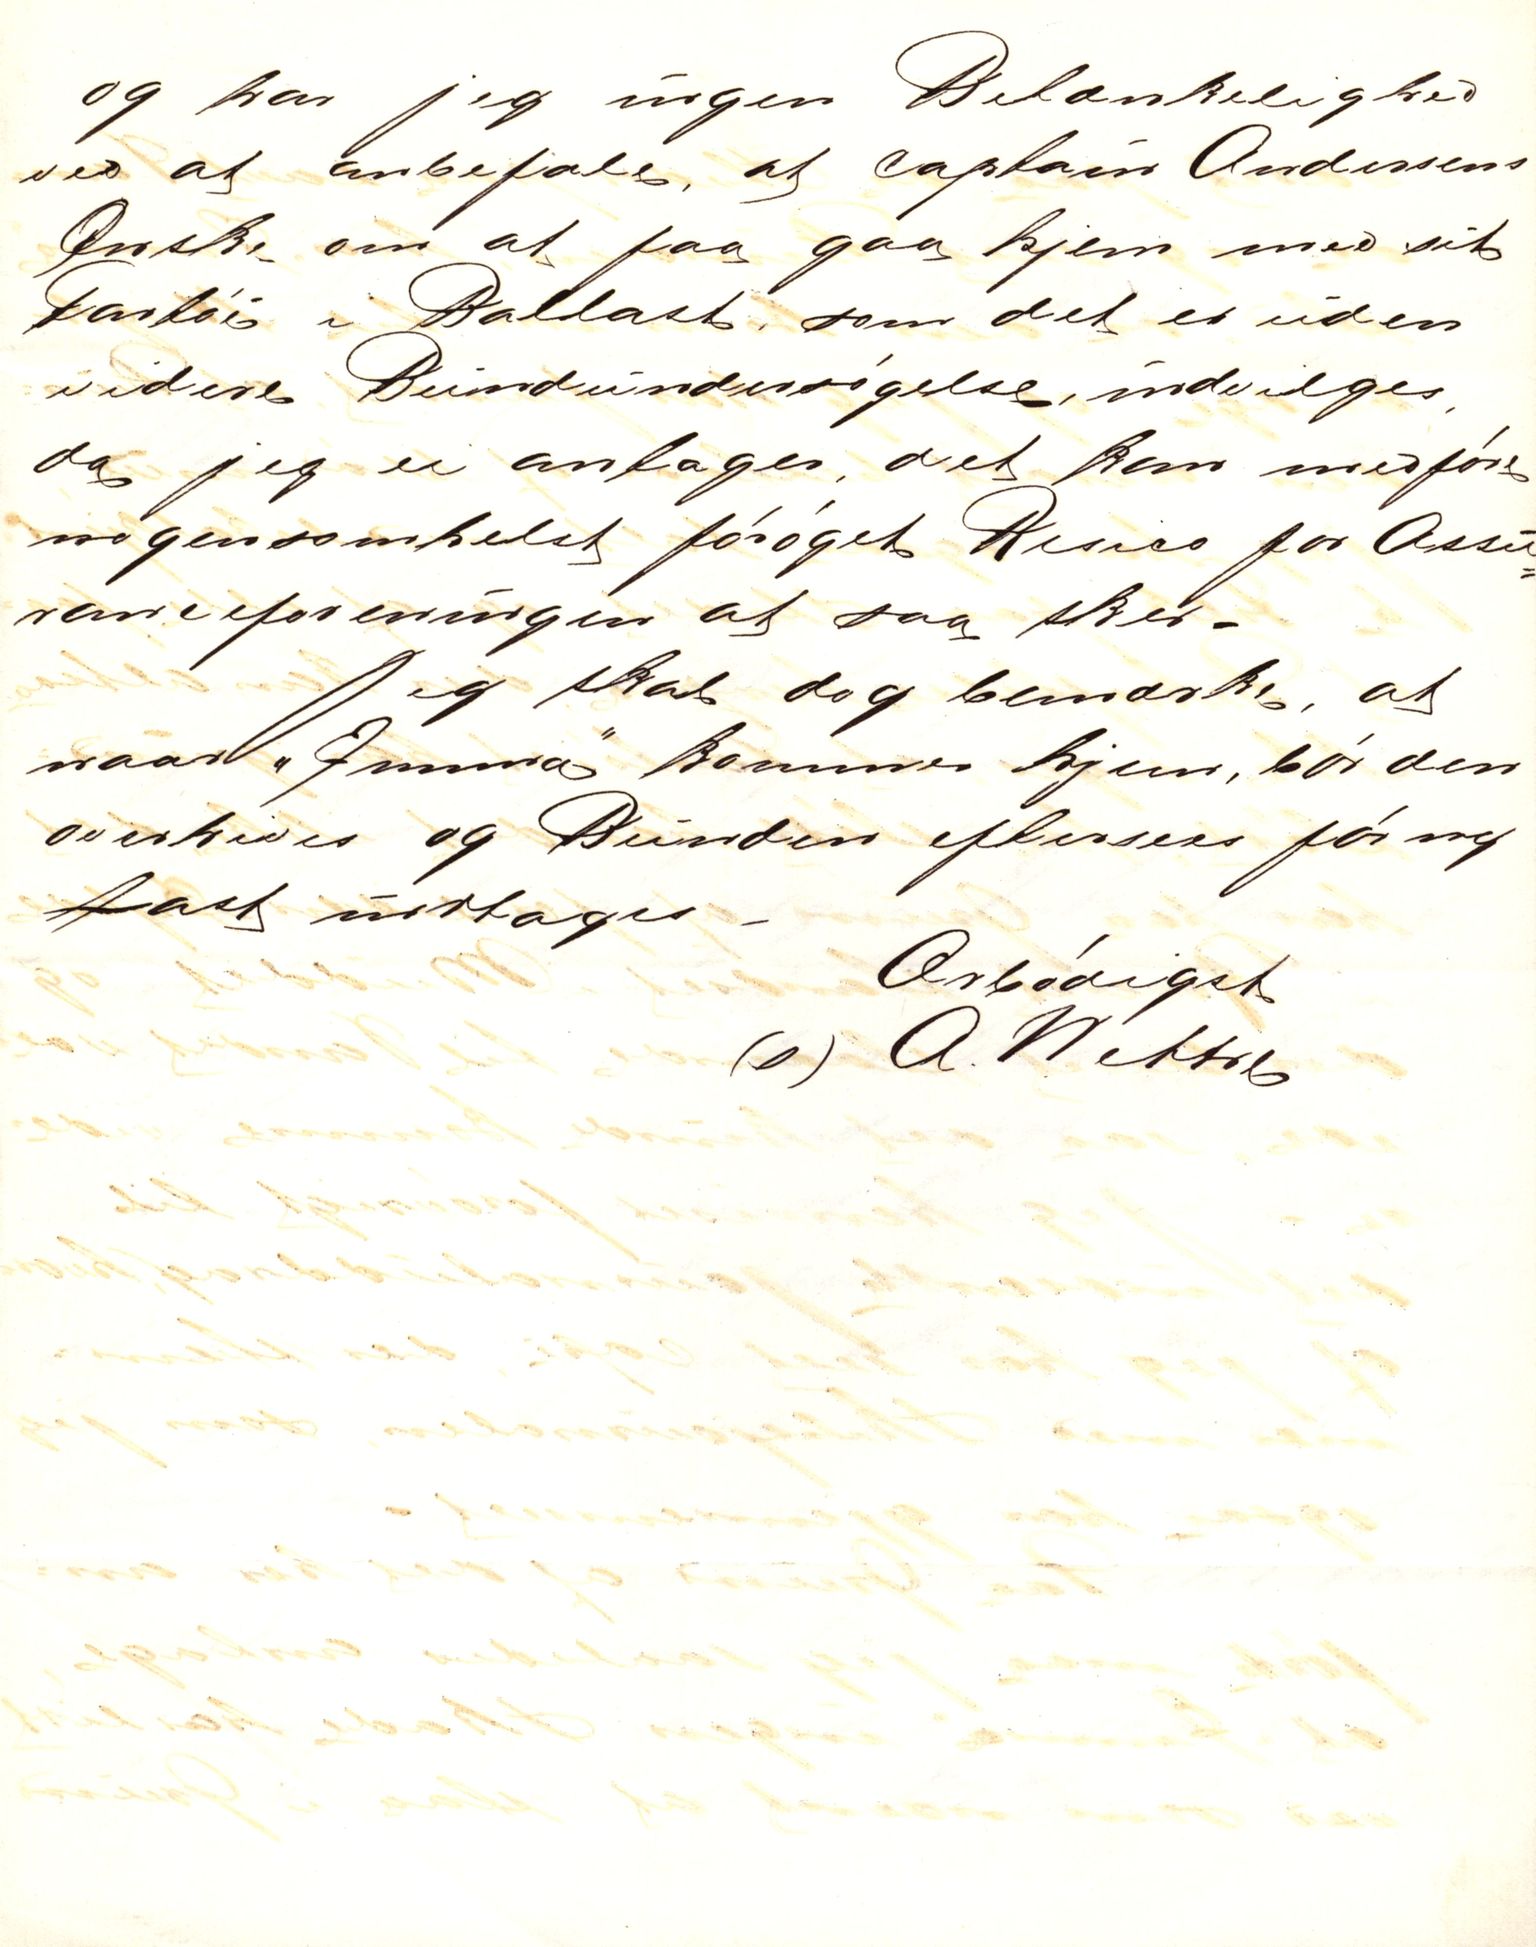 og har jeg ingen Betænkelighed
ved at anbefale, at Captain Andersens
Ønske om at faa gaa hjem med sit
Fartöi i Ballast, som det er uden
videre Bundundersögelse, indvilges,
da jeg ei antager, det kan medföre
nogensomhelst foröget Risico for Assu=
ranceforeningen at saa sker.
Jeg skal dog bemærke, at
naar "Imma" kommer hjem, bör den
overhives og Bunden efterses för ny
Last indtages.
Ærbödigst
(s) A.